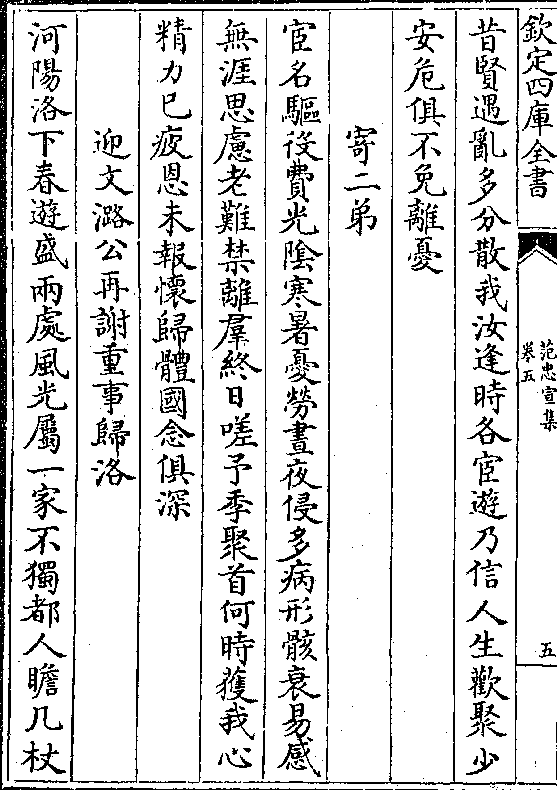 欽定四庫全書
范忠宣集
卷五
五
昔賢遇亂多分散我汝逢時各宦遊乃信人生歡聚少
安危俱不免離憂
寄二弟
宦名驅役費光陰寒暑憂勞晝夜侵多病形骸衰易感
無涯思慮老難禁離羣終日嗟予季聚首何時獲我心
精力已疲恩未報懷歸體國念俱深
迎文潞公再謝重事歸洛
河陽洛下春遊盛兩處風光屬一家不獨都人瞻几杖